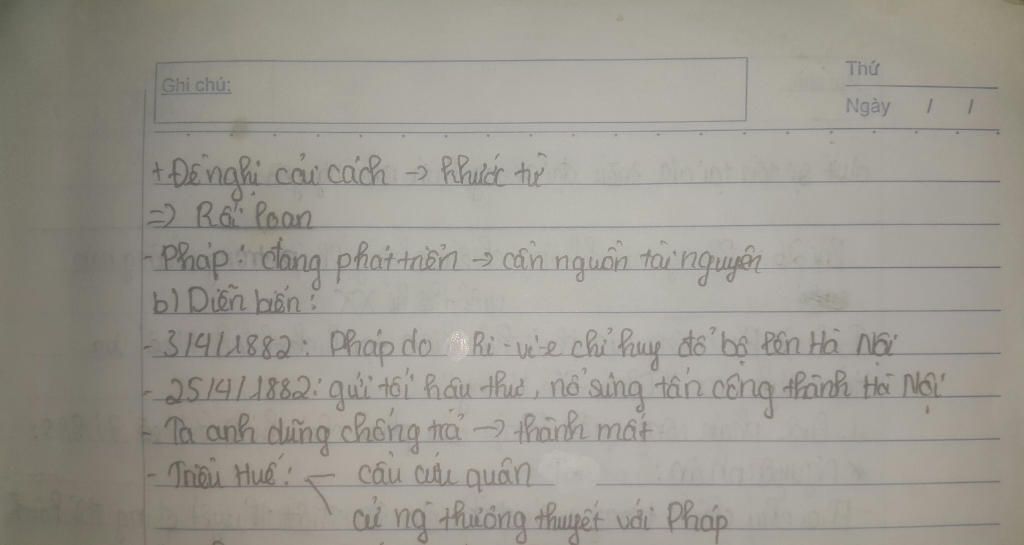 Ghi chú:
Thứ
Ngày / /
+ Đề nghị cải cách → khước từ
=> Rối loạn
- Pháp: đang phát triển → cần nguồn tài nguyên
b) Diễn biến:
- 3/4/1882: Pháp do Ri-vi-e chỉ huy đổ bộ lên Hà Nội
- 25/4/1882: gửi tối hậu thư, nổ súng tấn công thành Hà Nội
- Ta anh dũng chống trả → thành mất
- Triều Huế: cầu cứu quân
cử ng thương thuyết với Pháp